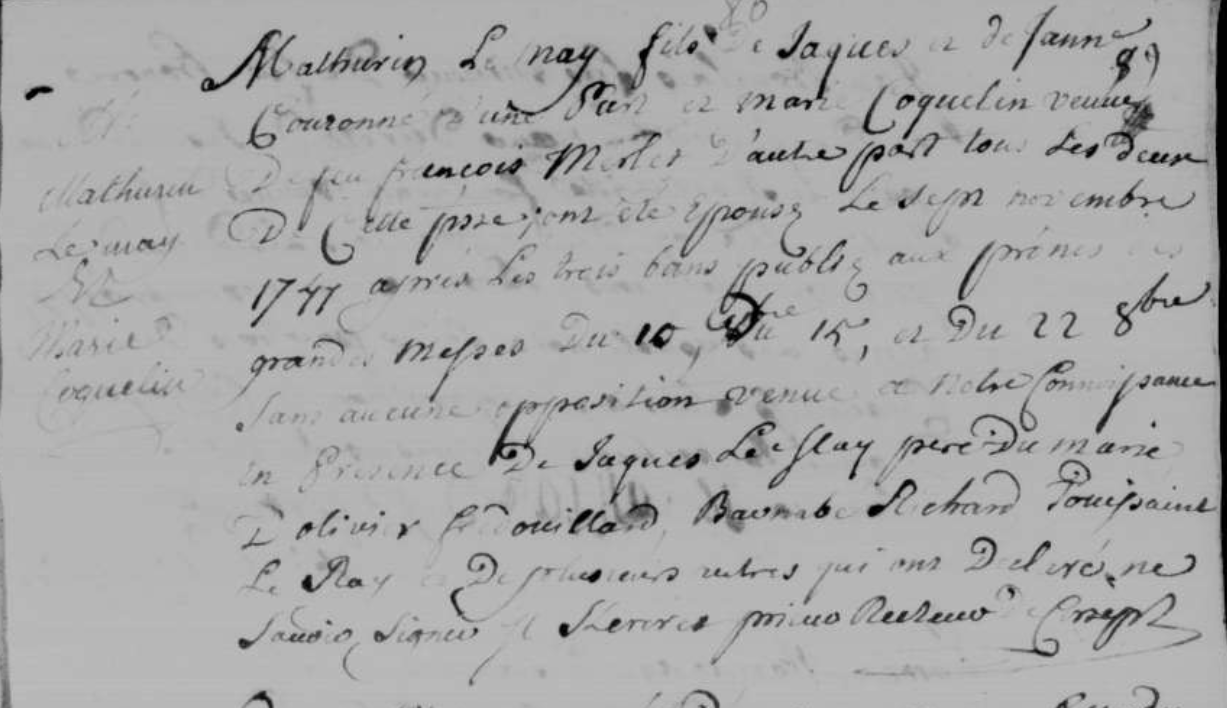 Mathurin
Le may
Et
Marie
Coquelin
Mathurin Le may fils De Jaques et de Janne
Couronné d'une Part et marie Coquelin veuve
De feu françois Merlet D'autre part tous Les deux
D Cette psse, ont été Epousez Le sept novembre
1747 après Les trois bans publiz aux prônes des
grandes Messes Du 10, Du 15, et Du 22 8bre
sans aucune opposition venue a Notre Connoissance
en Presence De Jaques Le may pere Du marié
D olivier Barnabe Richard Toussaint
Le Ray et De plusieurs autres qui ont Declaré ne
savoir Signer prieur Recteur de